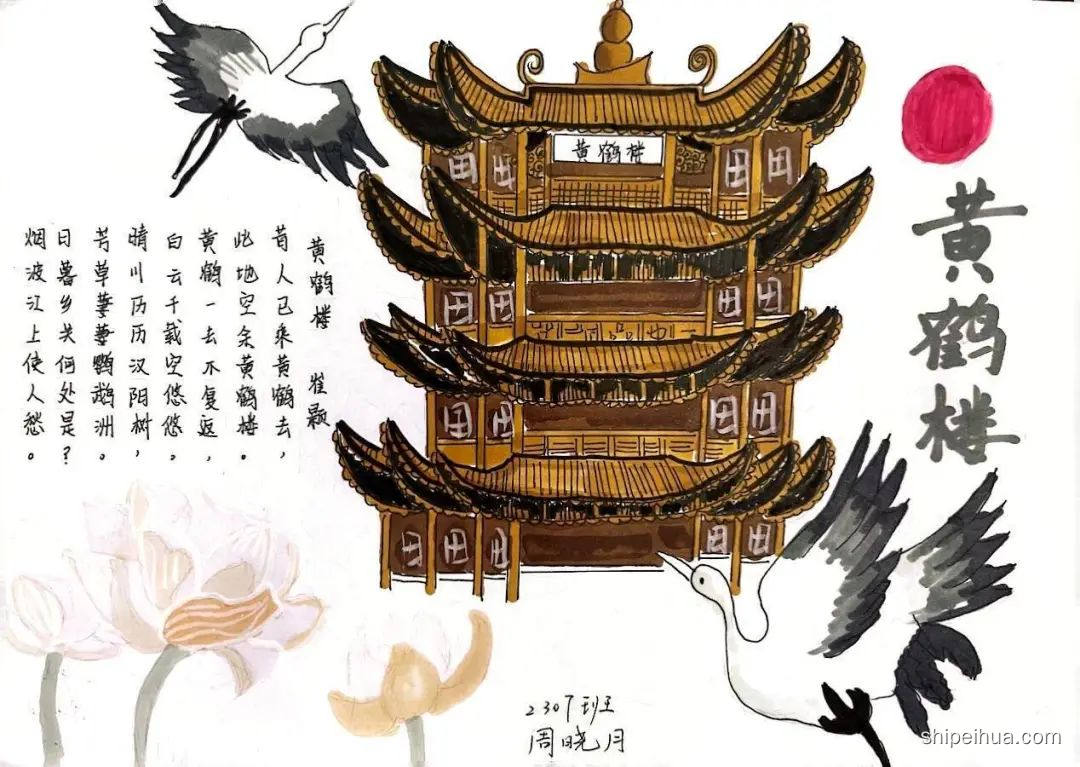 黄鹤楼
黄鹤楼
黄鹤楼 崔颢
昔人已乘黄鹤去,
此地空余黄鹤楼。
黄鹤一去不复返,
白云千载空悠悠。
晴川历历汉阳树,
芳草萋萋鹦鹉洲。
日暮乡关何处是?
烟波江上使人愁。
2307班
周晓月
shipeihua.com